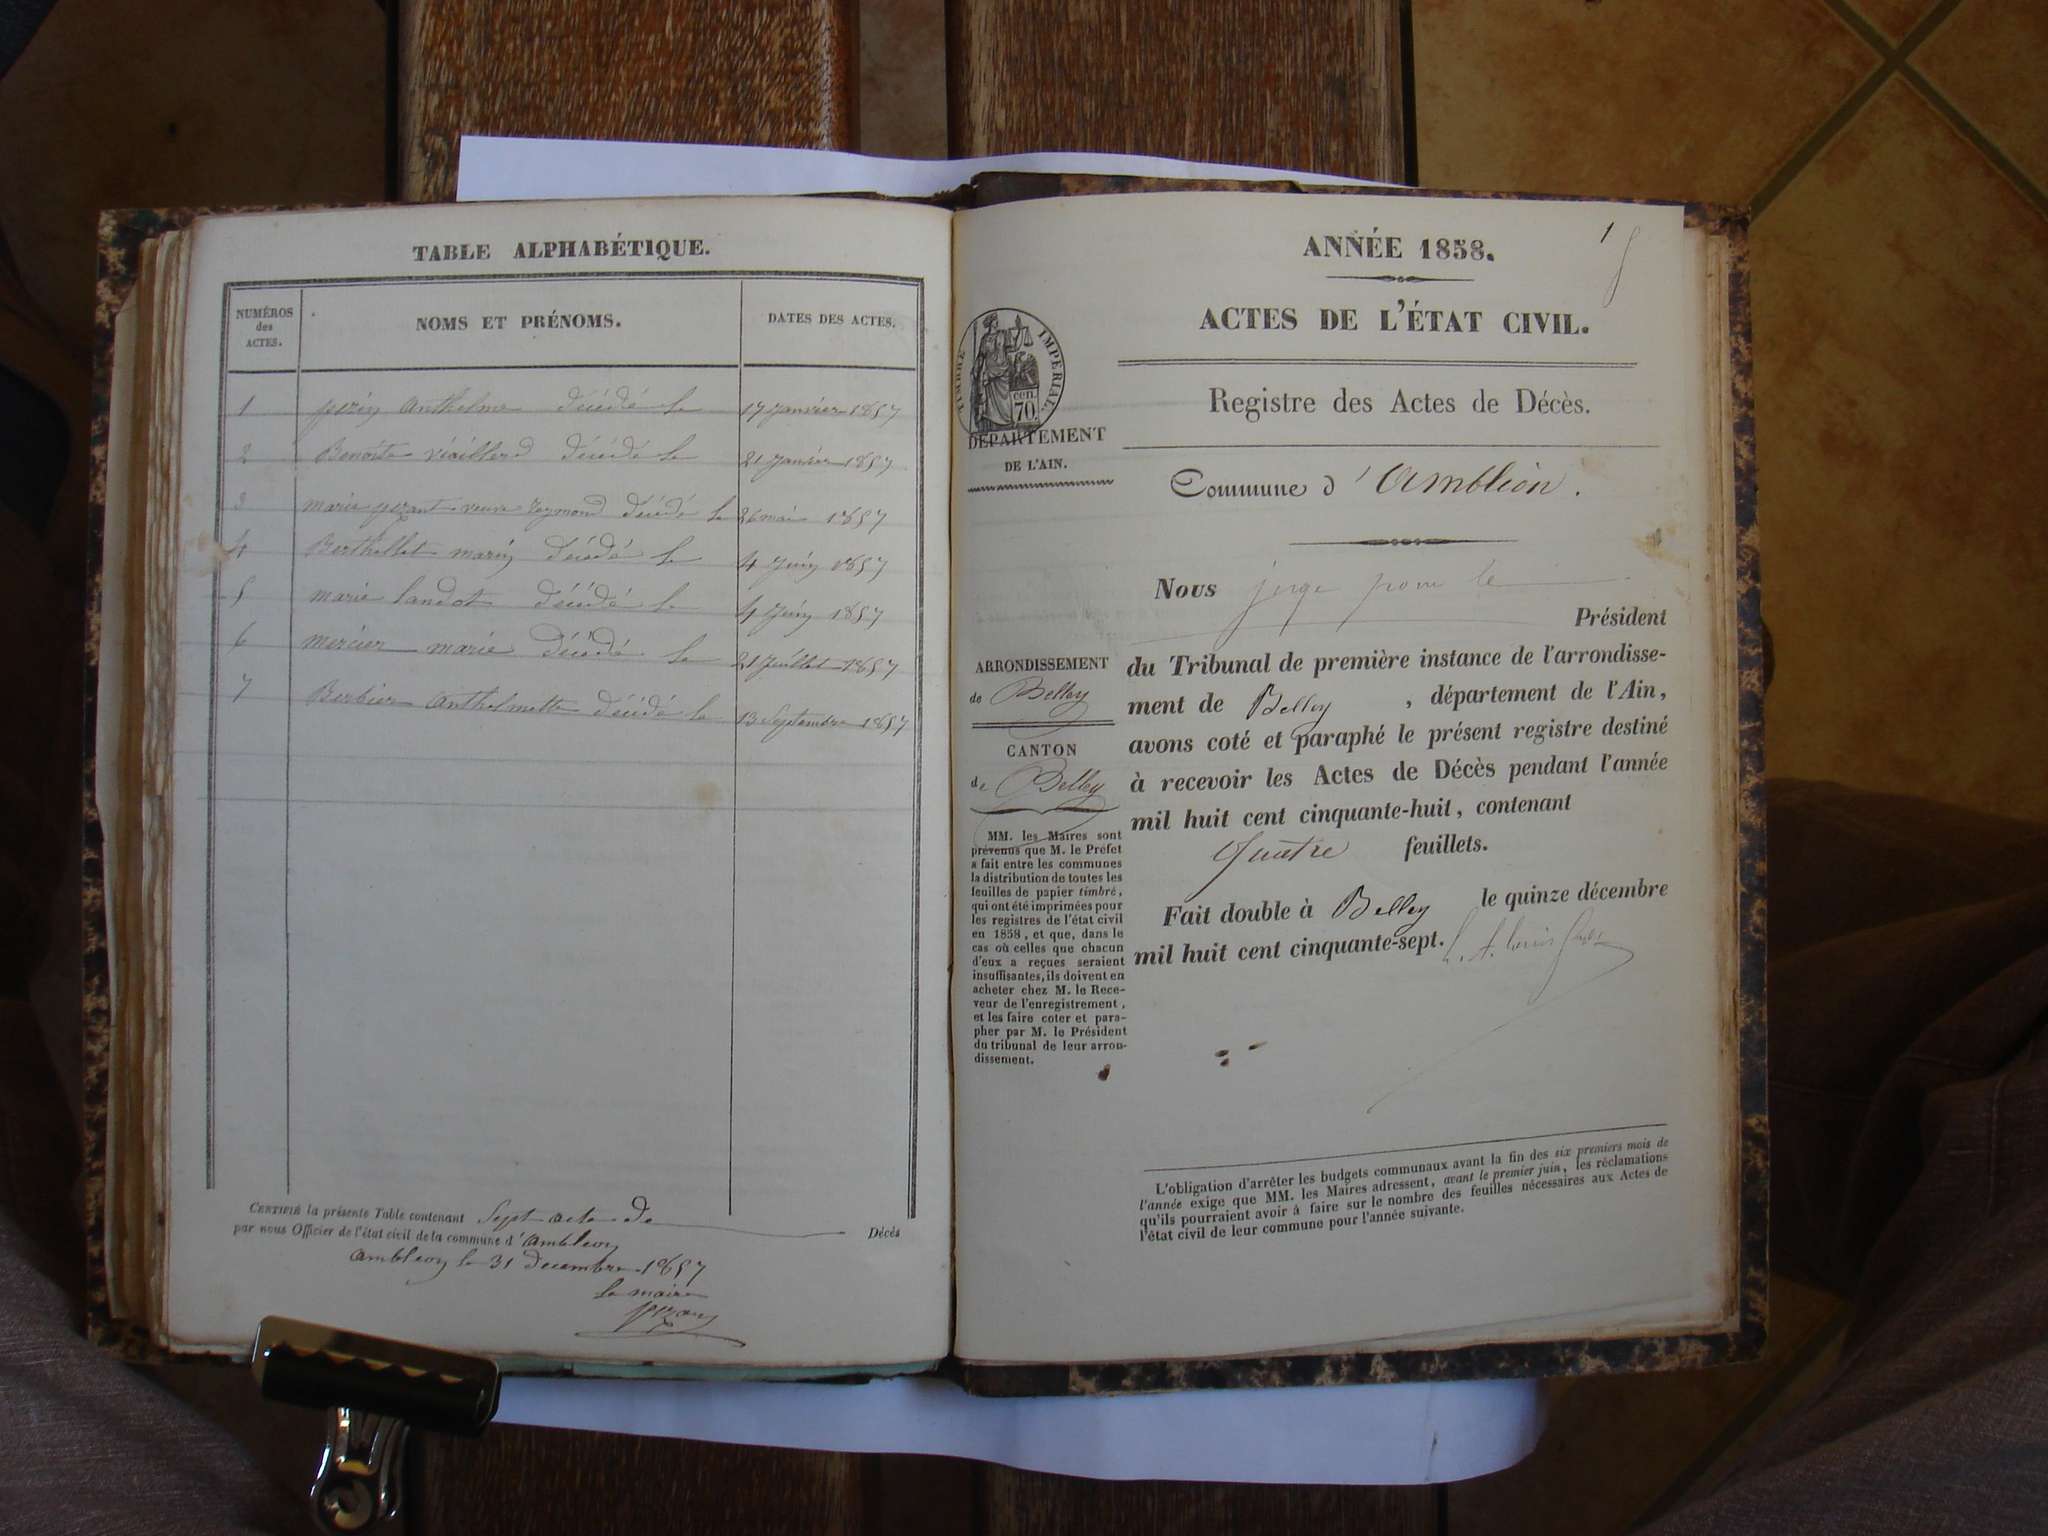 TABLE ALPHABÉTIQUE.
NUMÉROS des ACTES.
NOMS ET PRÉNOMS.
DATES DES ACTES.
1 perin anthelme décédé le 17 janvier 1857
2 Benoite décédé le 21 janvier 1857
3 marie pezant veuve Reymond décédé le 26 mai 1857
4 Berthellet décédé le 4 juin 1857
5 marie landot décédé le 4 juin 1857
6 mercier marie décédé le 21 juillet 1857
7 Berbier anthelmette décédé le 13 septembre 1857
CERTIFIÉ la présente Table contenant Sept acte de Décès
par nous Officier de l'état civil de la commune d'ambleon
ambleon le 31 decembre 1857
le maire
1
ANNÉE 1858.
ACTES DE L'ÉTAT CIVIL.
TIMBRE IMPÉRIAL.
cen.
70.
Registre des Actes de Décès.
DÉPARTEMENT
DE L'AIN.
Commune d'Ambléon.
Nous juge pour le
Président
ARRONDISSEMENT
de Belley
CANTON
de Belley
du Tribunal de première instance de l'arrondisse-
ment de Belley, département de l'Ain,
avons coté et paraphé le présent registre destiné
à recevoir les Actes de Décès pendant l'année
mil huit cent cinquante-huit, contenant
Quatre feuillets.
Fait double à Belley le quinze décembre
mil huit cent cinquante-sept.
MM. les Maires sont
prévenus que M. le Préfet
a fait entre les communes
la distribution de toutes les
feuilles de papier timbré,
qui ont été imprimées pour
les registres de l'état civil
en 1858, et que, dans le
cas où celles que chacun
d'eux a reçues seraient
insuffisantes, ils doivent en
acheter chez M. le Rece-
veur de l'enregistrement,
et les faire coter et para-
pher par M. le Président
du tribunal de leur arron-
dissement.
L'obligation d'arrêter les budgets communaux avant la fin des six premiers mois de
l'année exige que MM. les Maires adressent, avant le premier juin, les réclamations
qu'ils pourraient avoir à faire sur le nombre des feuilles nécessaires aux Actes de
l'état civil de leur commune pour l'année suivante.